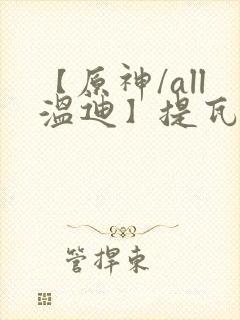 【原神/all
温迪】提瓦
管捍东